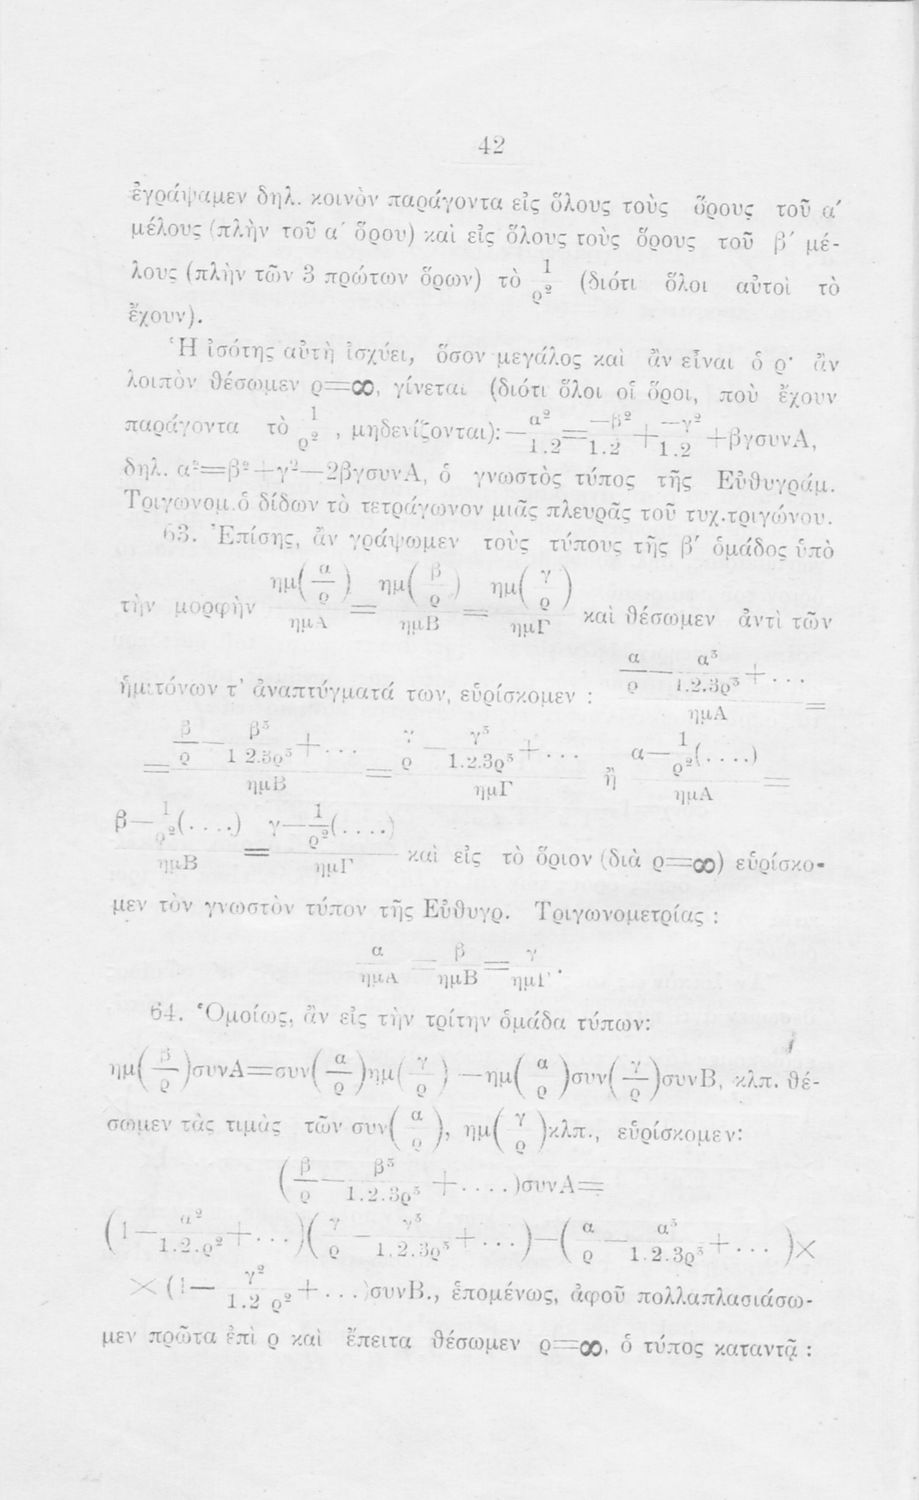 42
ἐγράψαμεν δηλ. κοινὸν παράγοντα εἰς ὅλους τοὺς ὅρους τοῦ α΄
μέλους (πλὴν τοῦ α΄ ὅρου) καὶ εἰς ὅλους τοὺς ὅρους τοῦ β΄ μέ-
λους (πλὴν τῶν 3 πρώτων ὅρων) τὸ 1/ρ² (διότι ὅλοι αὐτοὶ τὸ
ἔχουν).
Ἡ ἰσότης αὐτὴ ἰσχύει, ὅσον μεγάλος καὶ ἂν εἶναι ὁ ρ· ἂν
λοιπὸν θέσωμεν ρ=∞, γίνεται (διότι ὅλοι οἱ ὅροι, ποὺ ἔχουν
παράγοντα τὸ 1/ρ² , μηδενίζονται):—α²/1.2=—β²/1.2+—γ²/1.2+βγσυνΑ,
δηλ. α²=β²+γ²—2βγσυνΑ, ὁ γνωστὸς τύπος τῆς Εὐθυγράμ.
Τριγωνομ.ὁ δίδων τὸ τετράγωνον μιᾶς πλευρᾶς τοῦ τυχ.τριγώνου.
63. Ἐπίσης, ἂν γράψωμεν τοὺς τύπους τῆς β΄ ὁμάδος ὑπὸ
τὴν μορφὴν ημ(α/ρ)/ημΑ = ημ(β/ρ)/ημΒ = ημ(γ/ρ)/ημΓ καὶ θέσωμεν ἀντὶ τῶν
ἡμιτόνων τ' ἀναπτύγματά των, εὑρίσκομεν : (α/ρ — α³/1.2.3ρ³ + ...)/ημΑ =
= (β/ρ — β³/1 2.3ρ³ + ...)/ημΒ = (γ/ρ — γ³/1.2.3ρ³ + ...)/ημΓ ἢ (α—1/ρ²(....))/ημΑ =
(β—1/ρ²(....))/ημΒ = (γ—1/ρ²(....))/ημΓ καὶ εἰς τὸ ὅριον (διὰ ρ=∞) εὑρίσκο-
μεν τὸν γνωστὸν τύπον τῆς Εὐθυγρ. Τριγωνομετρίας :
α/ημΑ = β/ημΒ = γ/ημΓ .
64. Ὁμοίως, ἂν εἰς τὴν τρίτην ὁμάδα τύπων:
ημ(β/ρ)συνΑ=συν(α/ρ)ημ(γ/ρ) —ημ(α/ρ)συν(γ/ρ)συνΒ, κλπ. θέ-
σωμεν τὰς τιμὰς τῶν συν(α/ρ), ημ(γ/ρ)κλπ., εὑρίσκομεν:
(β/ρ — β³/1.2.3ρ³ +....)συνΑ=
(1—α²/1.2.ρ²+...)(γ/ρ — γ³/1.2.3ρ³+...)—(α/ρ — α³/1.2.3ρ³+...)×
×(1— γ²/1.2 ρ²+...)συνΒ., ἑπομένως, ἀφοῦ πολλαπλασιάσω-
μεν πρῶτα ἐπὶ ρ καὶ ἔπειτα θέσωμεν ρ=∞, ὁ τύπος καταντᾷ :